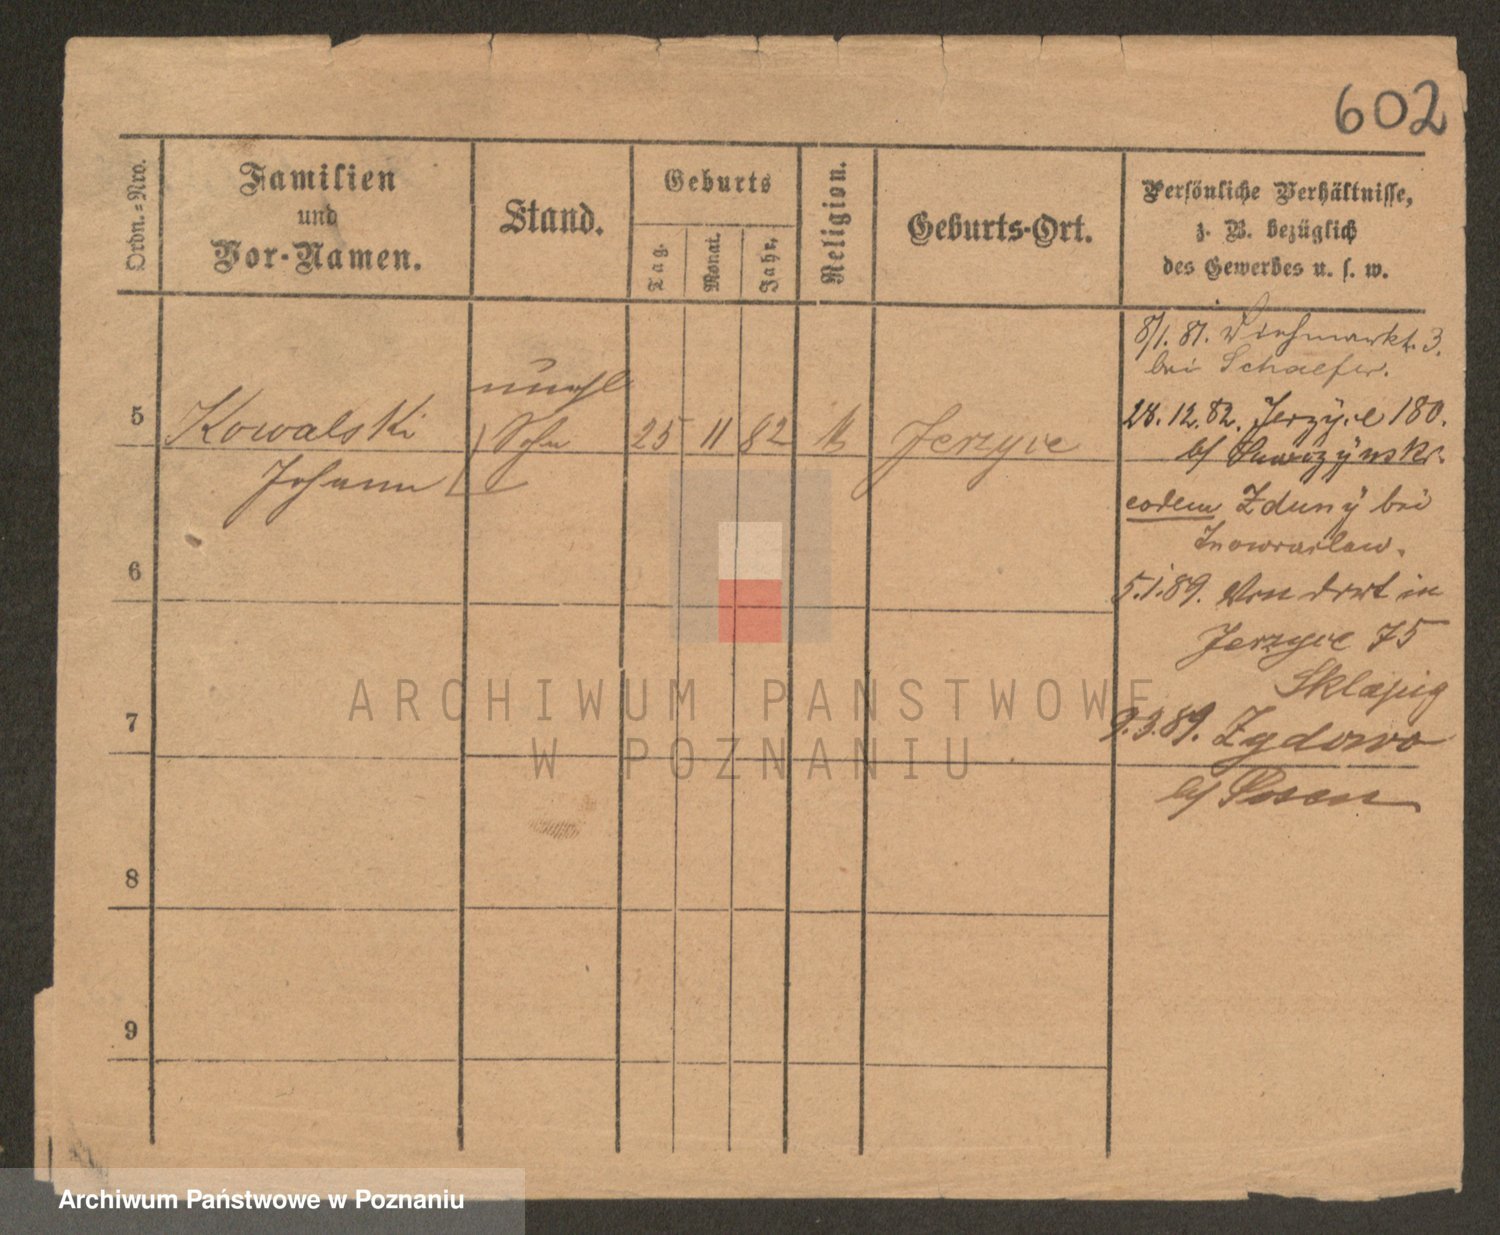 602
Ordn.=Nro.
Familien
und
Vor-Namen.
Stand.
Geburts
Tag.
Monat.
Jahr.
Religion.
Geburts-Ort.
Persönliche Verhältnisse,
z. B. bezüglich
des Gewerbes u. s. w.
8/1. 81. Viehmarkt 3.
bei Schaefer.
unehl
5 Kowalski Sohn 25 11 82 k Jerzyce
Johann
28.12.82. Jerzyce 180.
b/
eodem Zduny bei
Inowraclaw.
5.1.89. Von dort in
Jerzyce 75
9.3.89. Zydowo
b/ Posen
6
7
8
9
ARCHIWUM PAŃSTWOWE
W POZNANIU
Archiwum Państwowe w Poznaniu